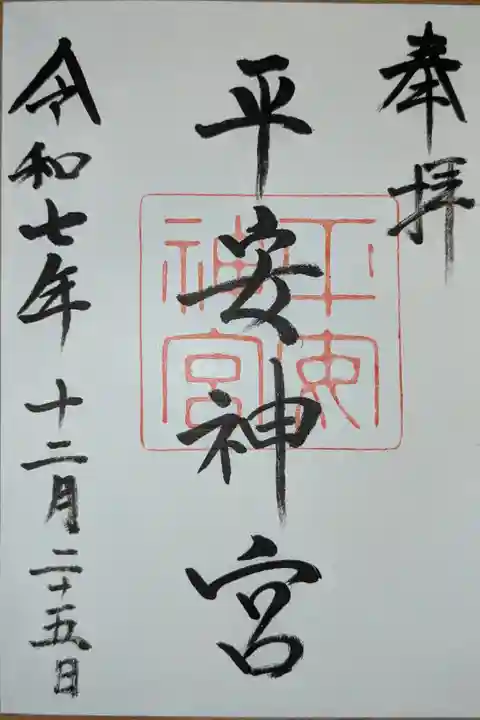 奉拝
平安神宮
平安神宮
令和七年十二月二十五日